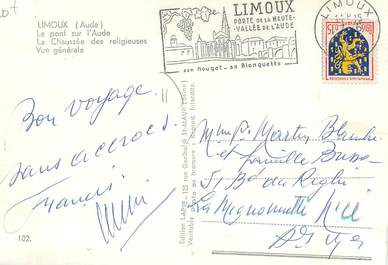 207
LIMOUX (Aude)
Le pont sur l'Aude
La Chaussée des religieuses
Vue générale
LIMOUX
PORTE DE LA HAUTE-
VALLÉE DE L'AUDE
son Nougat - sa Blanquette
LIMOUX
Bon voyage
sans accrocs
Francis
102.
Edition LAPIE - 123 rue Garibaldi St-MAUR (Seine)
Véritable photo au bromure - Reprod. Interdite.
Mme Martin Blanche
et famille
51 Bd de
La Mignonnette Nice